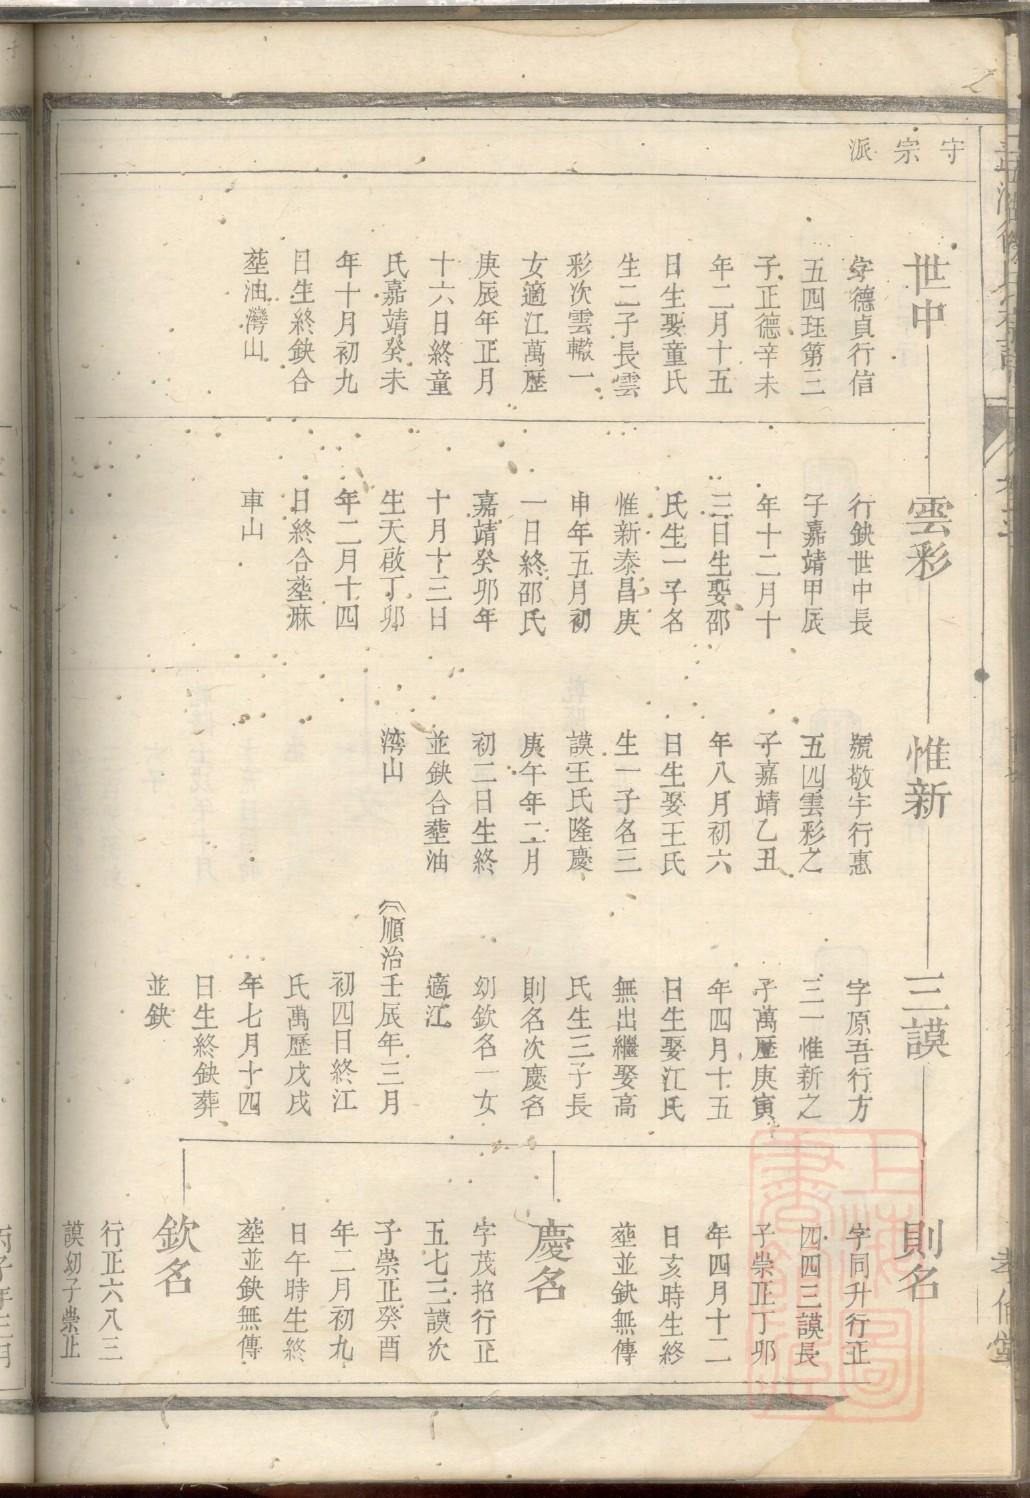 守宗派
世中
字德貞行信
五四珏第三
子正德辛未
年二月十五
日生娶童氏
生二子長雲
彩次雲轍一
女適江萬歷
庚辰年正月
十六日終童
氏嘉靖癸未
年十月初九
日生終鈌合
塟油灣山
雲彩
行鈌世中長
子嘉靖甲辰
年十二月十
三日生娶邵
氏生一子名
惟新泰昌庚
申年五月初
一日終邵氏
嘉靖癸卯年
十月十三日
生天啟丁卯
年二月十四
日終合塟麻
車山
惟新
號敬宇行惠
五四雲彩之
子嘉靖乙丑
年八月初六
日生娶王氏
生一子名三
謨王氏隆慶
庚午年二月
初二日生終
並鈌合塟油
灣山
三謨
字原吾行方
三一惟新之
子萬歷庚寅
年四月十五
日生娶江氏
無出繼娶高
氏生三子長
則名次慶名
幼欽名一女
適江
順治壬辰年三月
初四日終江
氏萬歷戊戌
年七月十四
日生終鈌葬
並鈌
則名
字同升行正
四四三謨長
子崇正丁卯
年四月十二
日亥時生終
塟並鈌無傳
慶名
字茂招行正
五七三謨次
子崇正癸酉
年二月初九
日午時生終
塟並鈌無傳
欽名
行正六八三
謨幼子崇正